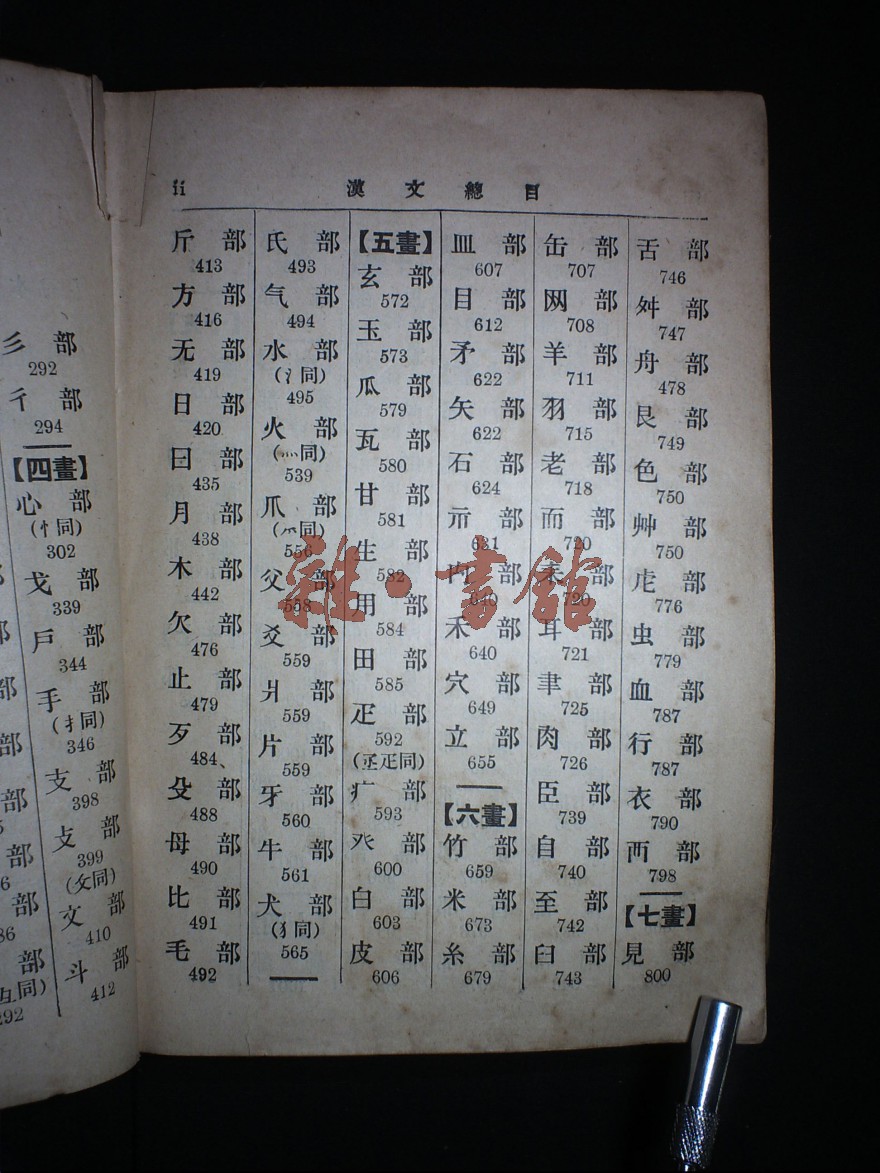 彡 部
292
彳 部
294
【四畫】
心 部
(忄同)
302
戈 部
339
戶 部
344
手 部
(扌同)
346
支 部
398
攴 部
399
(攵同)
文 部
410
斗 部
412
ii 漢文總目
斤 部
413
方 部
416
无 部
419
日 部
420
曰 部
435
月 部
438
木 部
442
欠 部
476
止 部
479
歹 部
484
殳 部
488
母 部
490
比 部
491
毛 部
492
氏 部
493
气 部
494
水 部
(氵同)
495
火 部
(灬同)
539
爪 部
(爫同)
556
父 部
558
爻 部
559
爿 部
559
片 部
559
牙 部
560
牛 部
561
犬 部
(犭同)
565
【五畫】
玄 部
572
玉 部
573
瓜 部
579
瓦 部
580
甘 部
581
生 部
582
用 部
584
田 部
585
疋 部
592
疒 部
593
癶 部
600
白 部
603
皮 部
606
皿 部
607
目 部
612
矛 部
622
矢 部
622
石 部
624
示 部
631
禸 部
640
禾 部
640
穴 部
649
立 部
655
【六畫】
竹 部
659
米 部
673
糸 部
679
缶 部
707
网 部
708
羊 部
711
羽 部
715
老 部
718
而 部
720
耒 部
720
耳 部
721
聿 部
725
肉 部
726
臣 部
739
自 部
740
至 部
742
臼 部
743
舌 部
746
舛 部
747
舟 部
478
艮 部
749
色 部
750
艸 部
750
虍 部
776
虫 部
779
血 部
787
行 部
787
衣 部
790
襾 部
798
【七畫】
見 部
800
雜·書館